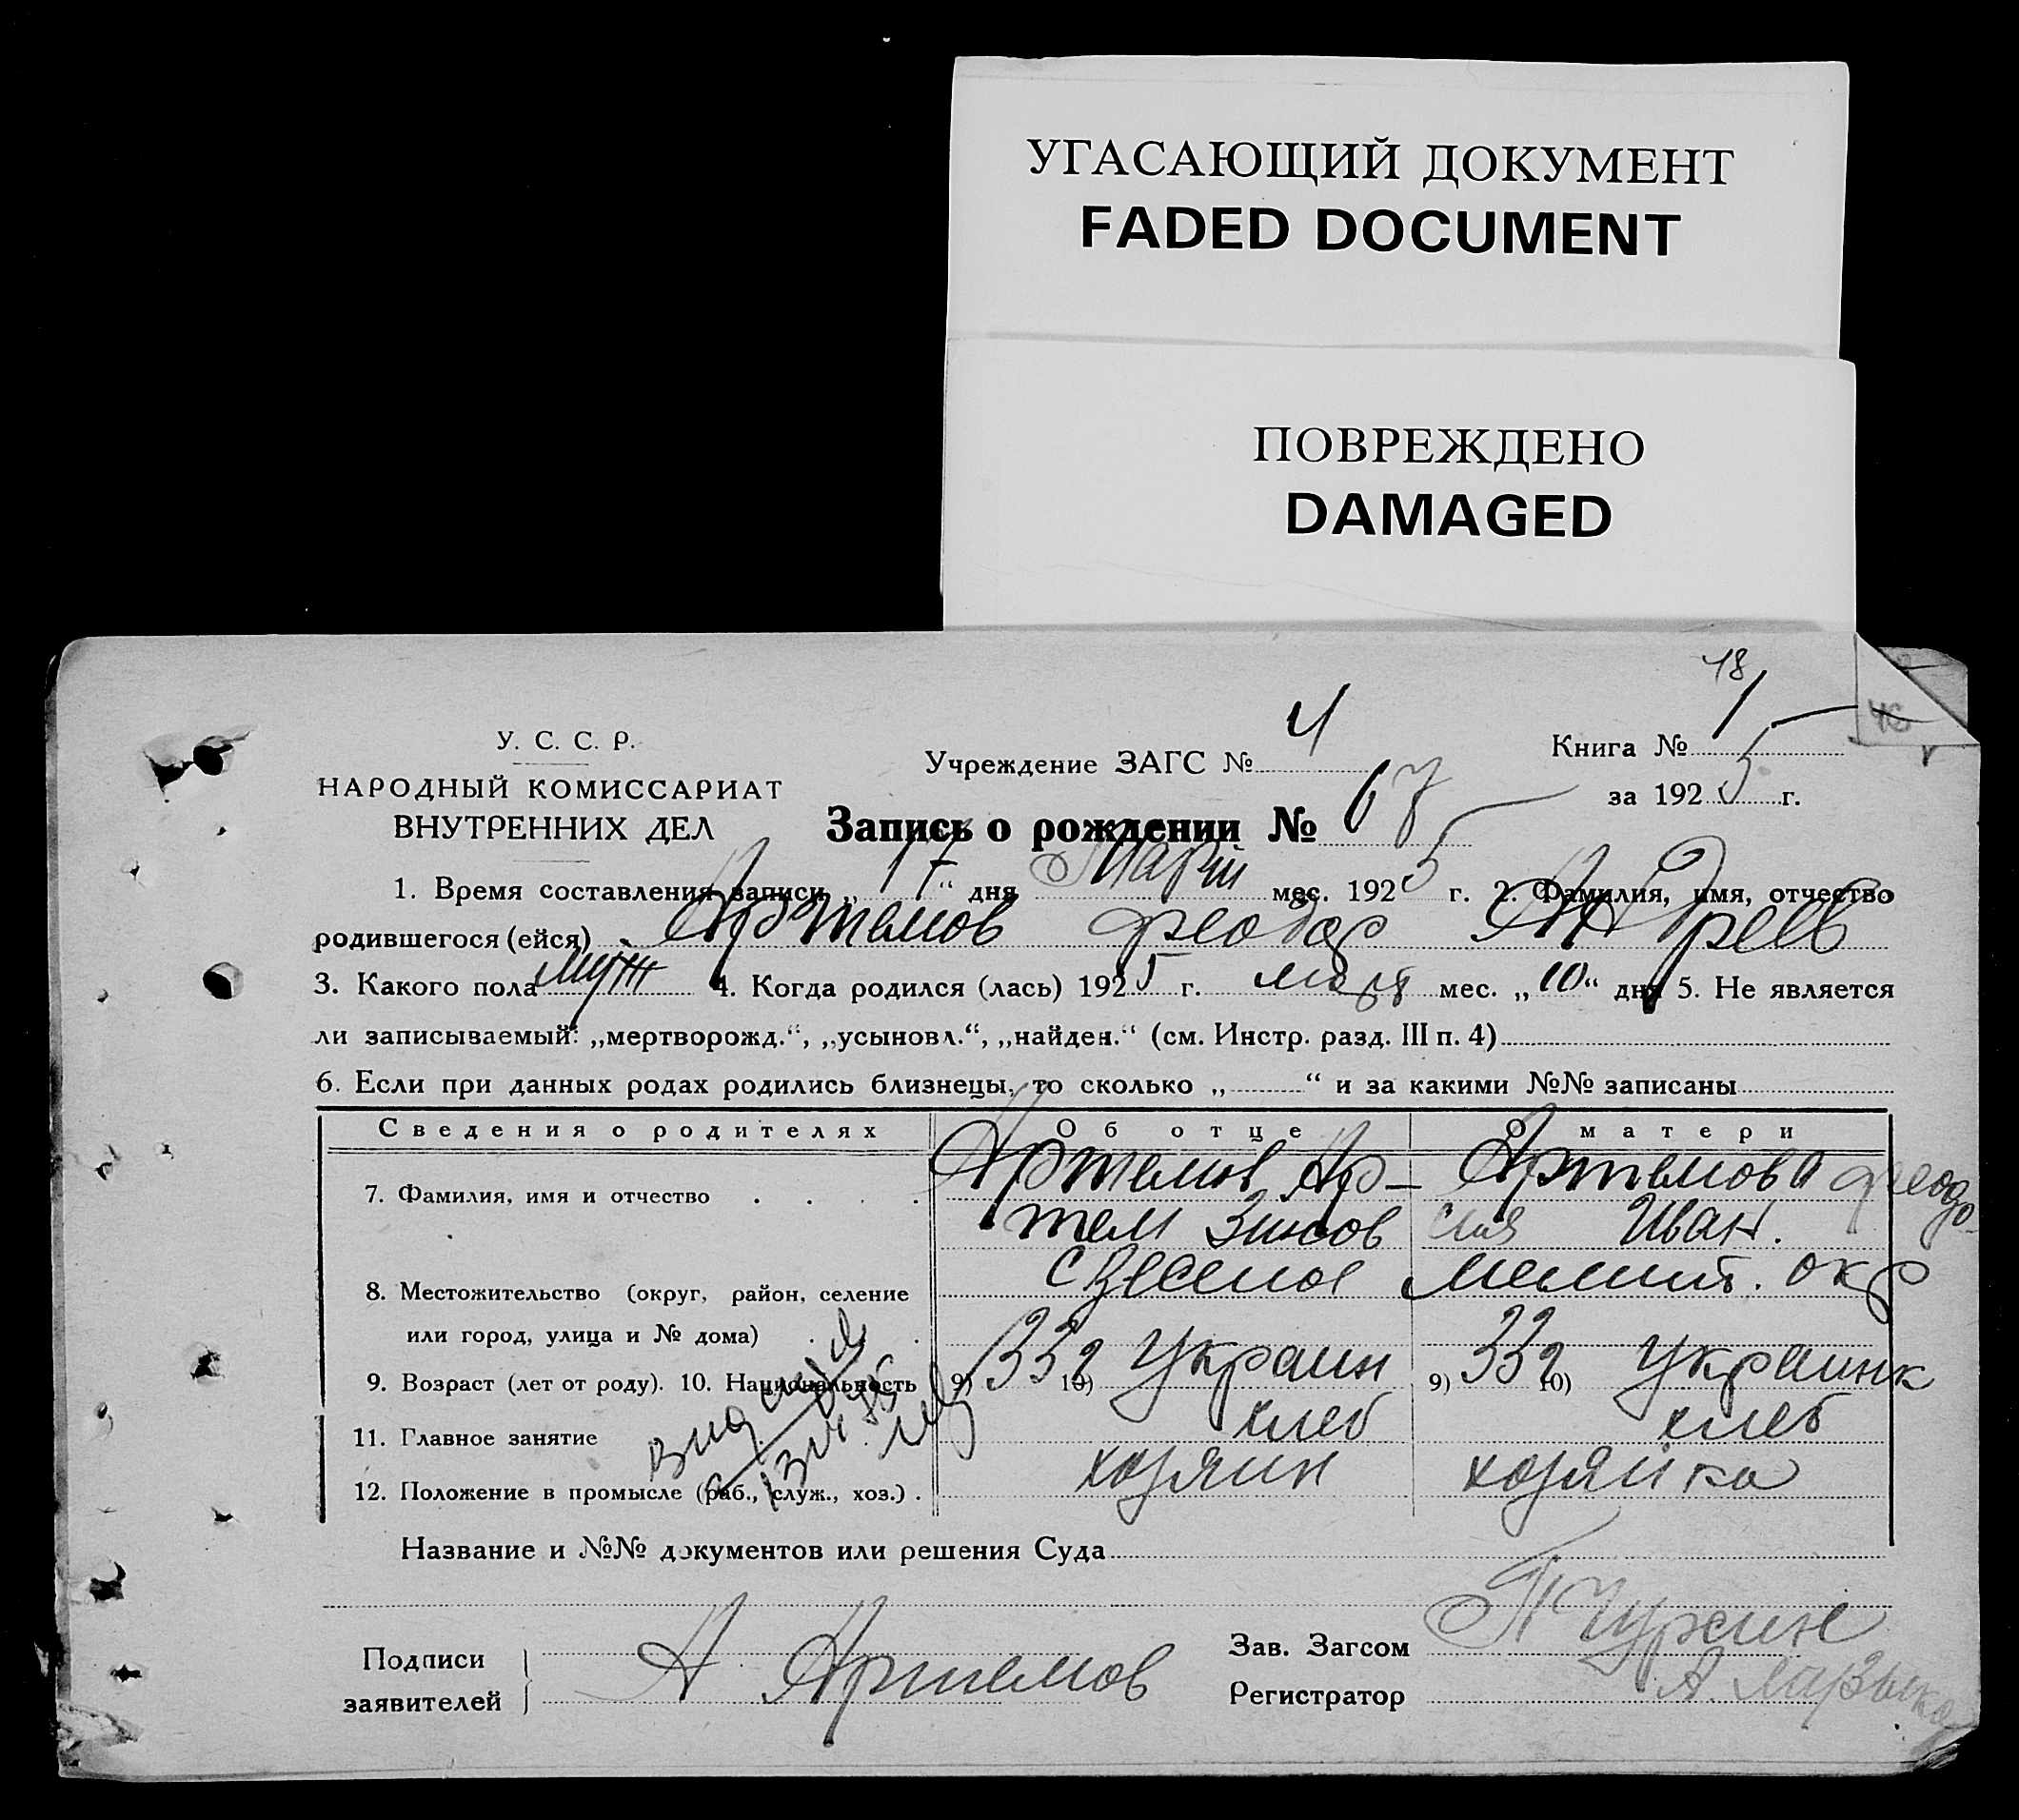 УГАСАЮЩИЙ ДОКУМЕНТ
FADED DOCUMENT
ПОВРЕЖДЕНО
DAMAGED
18
У. С. С. Р.
НАРОДНЫЙ КОМИССАРИАТ
ВНУТРЕННИХ ДЕЛ
Учреждение ЗАГС № 4
Книга № 1
за 1925 г.
Запись о рождении № 67
1. Время составления записи „17“ дня Март мес. 1925 г. 2. Фамилия, имя, отчество
родившегося (ейся) Артемов Феодор Андреев
3. Какого пола муж 4. Когда родился (лась) 1925 г. марта мес. „10“ дня 5. Не является
ли записываемый: „мертворожд.“, „усыновл.“, „найден.“ (см. Инстр. разд. III п. 4)
6. Если при данных родах родились близнецы, то сколько „ “ и за какими №№ записаны
Сведения о родителях Об отце О матери
7. Фамилия, имя и отчество . . . . Артемов Ар- Артемова Феодо-
тем сия Иван.
8. Местожительство (округ, район, селение с Веселое Мелит. окр
или город, улица и № дома)
9. Возраст (лет от роду). 10. Национальность 9) 33 10) Украин 9) 33 10) Украинк
11. Главное занятие хлеб хлеб
12. Положение в промысле (раб., служ., хоз.) . хозяин хозяйка
Название и №№ документов или решения Суда
Подписи
заявителей
А Артемов
Зав. Загсом
Регистратор